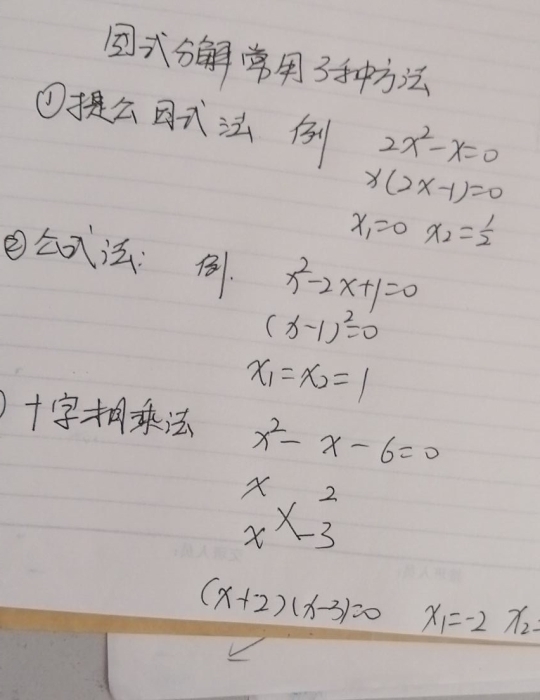 因式分解常用3种方法
①提公因式法 例 2x²-x=0
x(2x-1)=0
x₁=0 x₂=½
②公式法: 例. x²-2x+1=0
(x-1)²=0
x₁=x₂=1
十字相乘法 x²-x-6=0
x 2
x -3
(x+2)(x-3)=0 x₁=-2 x₂=